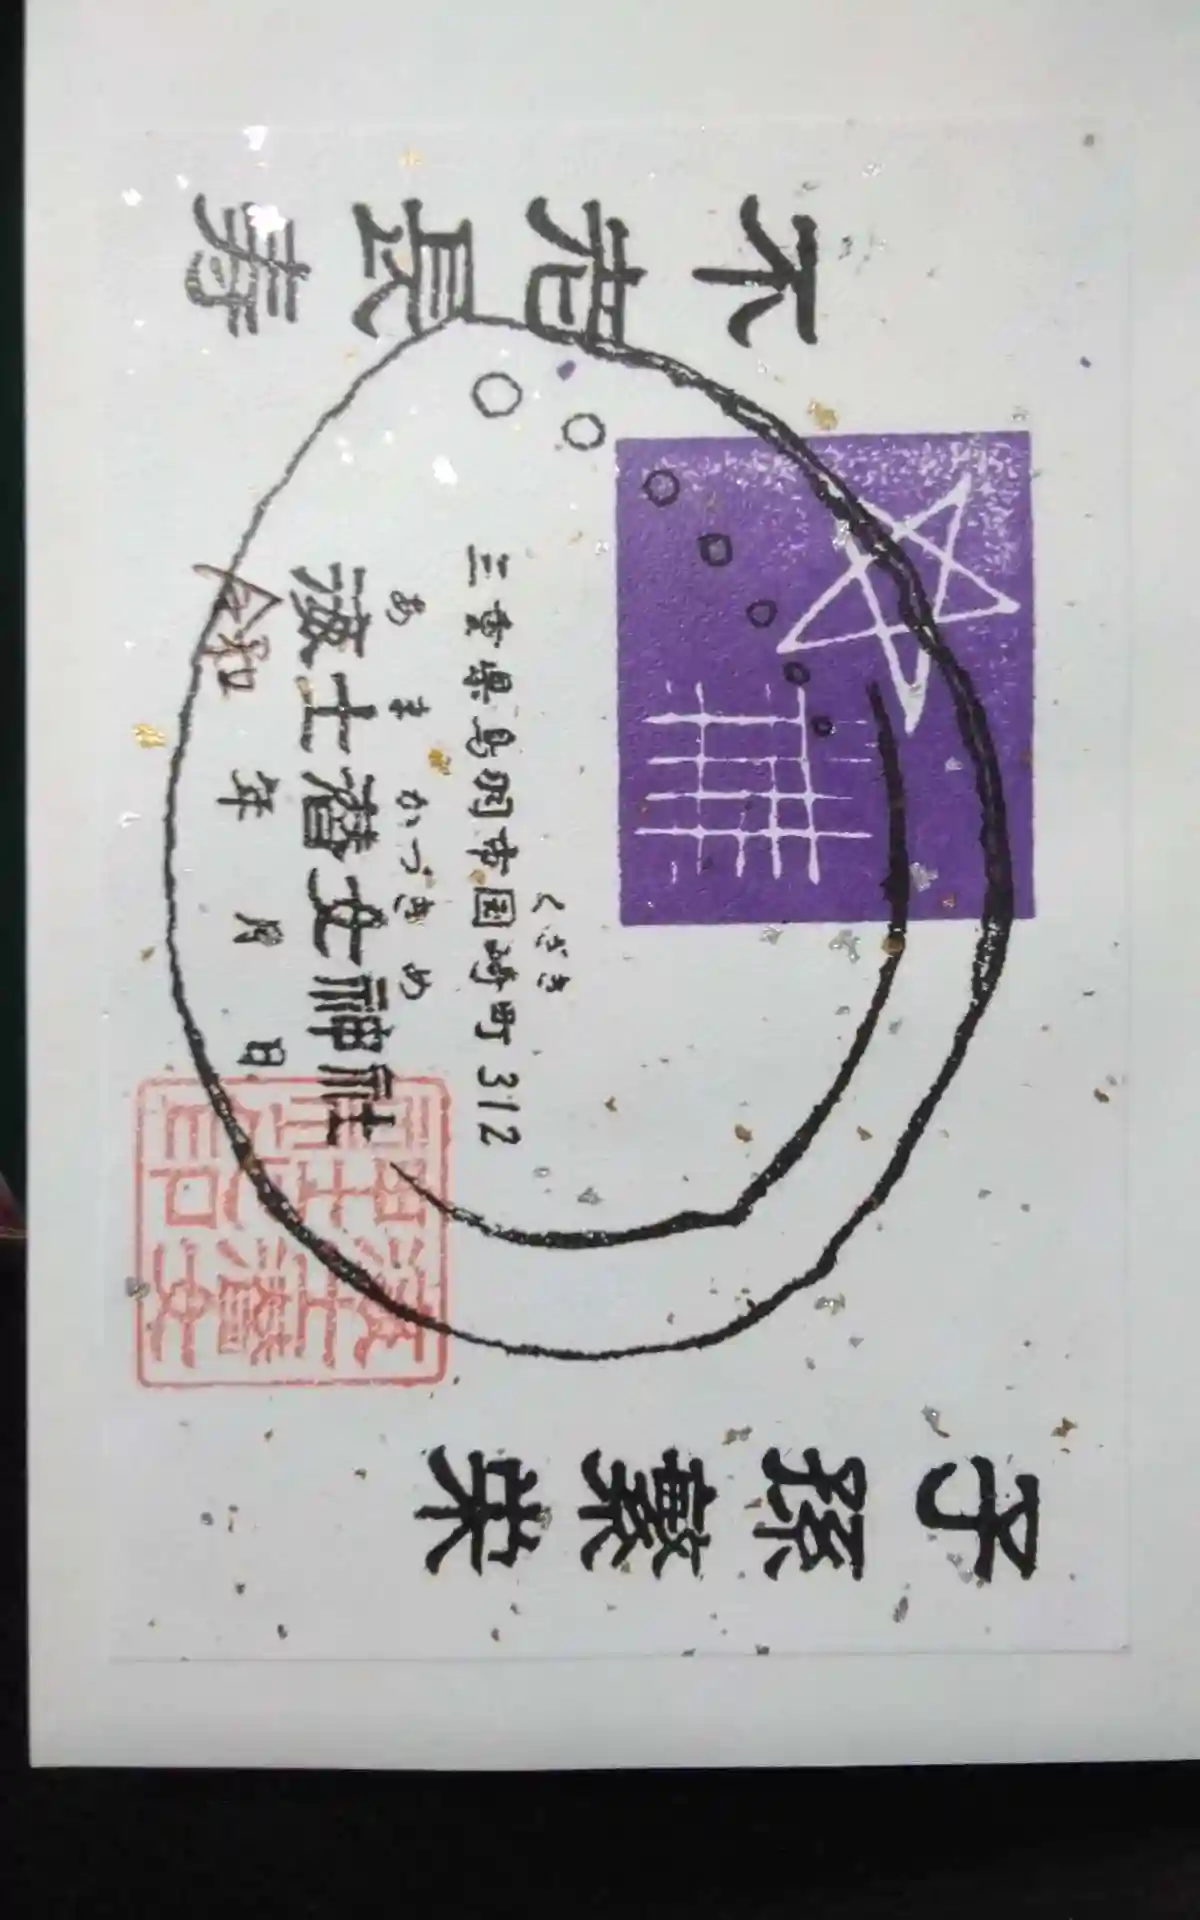 子孫繁栄
不老長寿
くざき
三重県鳥羽市国崎町312
あま かづきめ
海士潜女神社
令和 年 月 日
海士潜女
神社之印